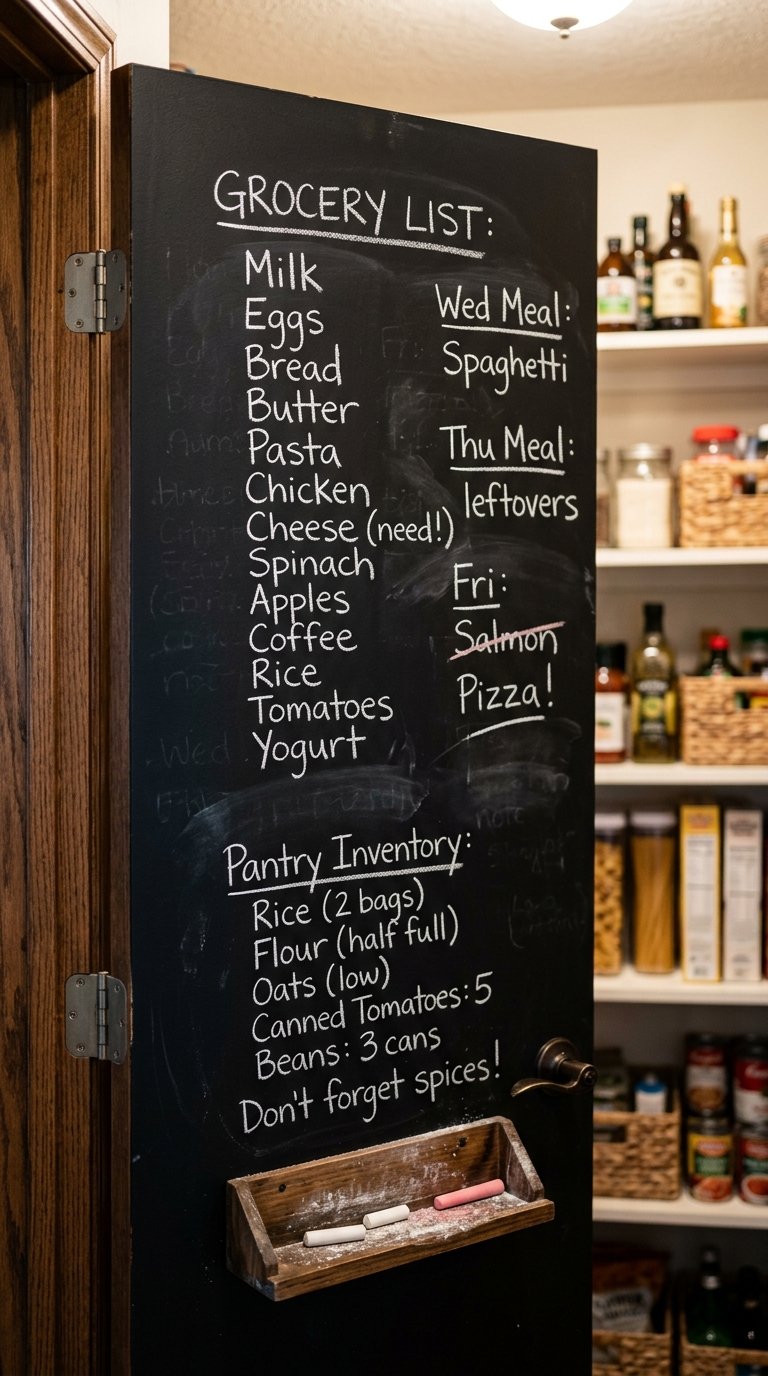 GROCERY LIST:
Milk
Eggs
Bread
Butter
Pasta
Chicken
Cheese (need!)
Spinach
Apples
Coffee
Rice
Tomatoes
Yogurt
Wed Meal:
Spaghetti
Thu Meal:
leftovers
Fri:
Salmon
Pizza!
Pantry Inventory:
Rice (2 bags)
Flour (half full)
Oats (low)
Canned Tomatoes: 5
Beans: 3 cans
Don't forget spices!